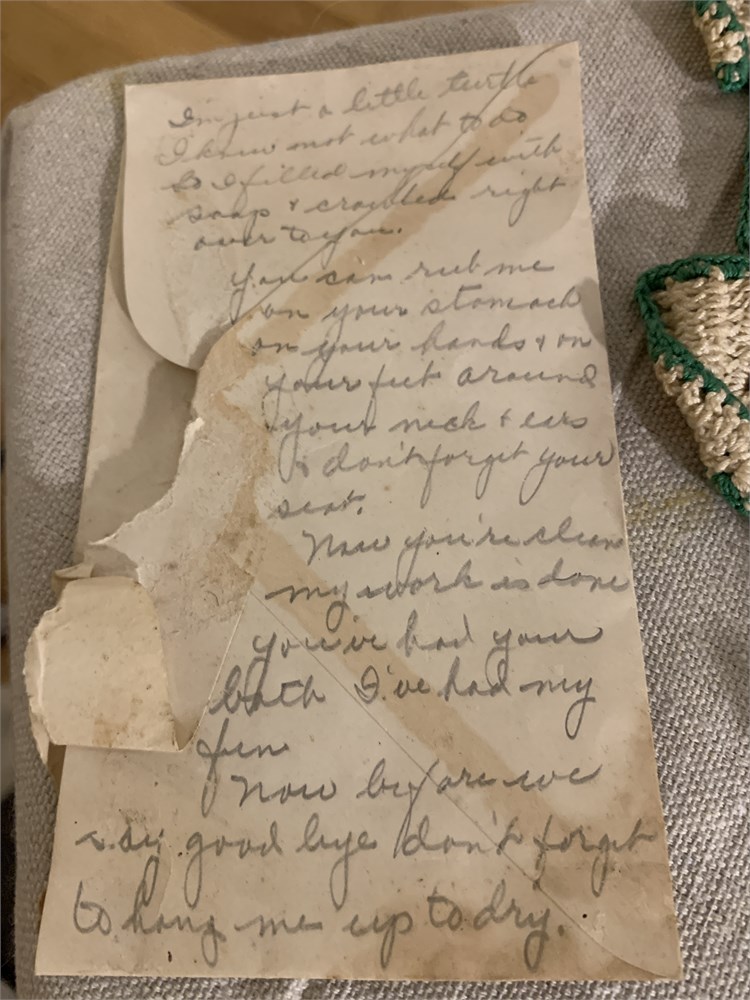 I'm just a little turtle
I knew not what to do
So I filled myself with
soap & crawled right
over to you.
You can rub me
on your stomach
on your hands & on
your feet around
your neck & ears
& don't forget your
seat.
Now you're clean
my work is done
you've had your
bath I've had my
fun
Now before we
say good bye don't forget
to hang me up to dry.